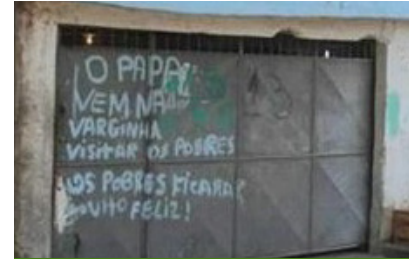 O PAPA
VEM NA
VARGINHA
VISITAR OS POBRES
OS POBRES FICARAR
FELIZ!